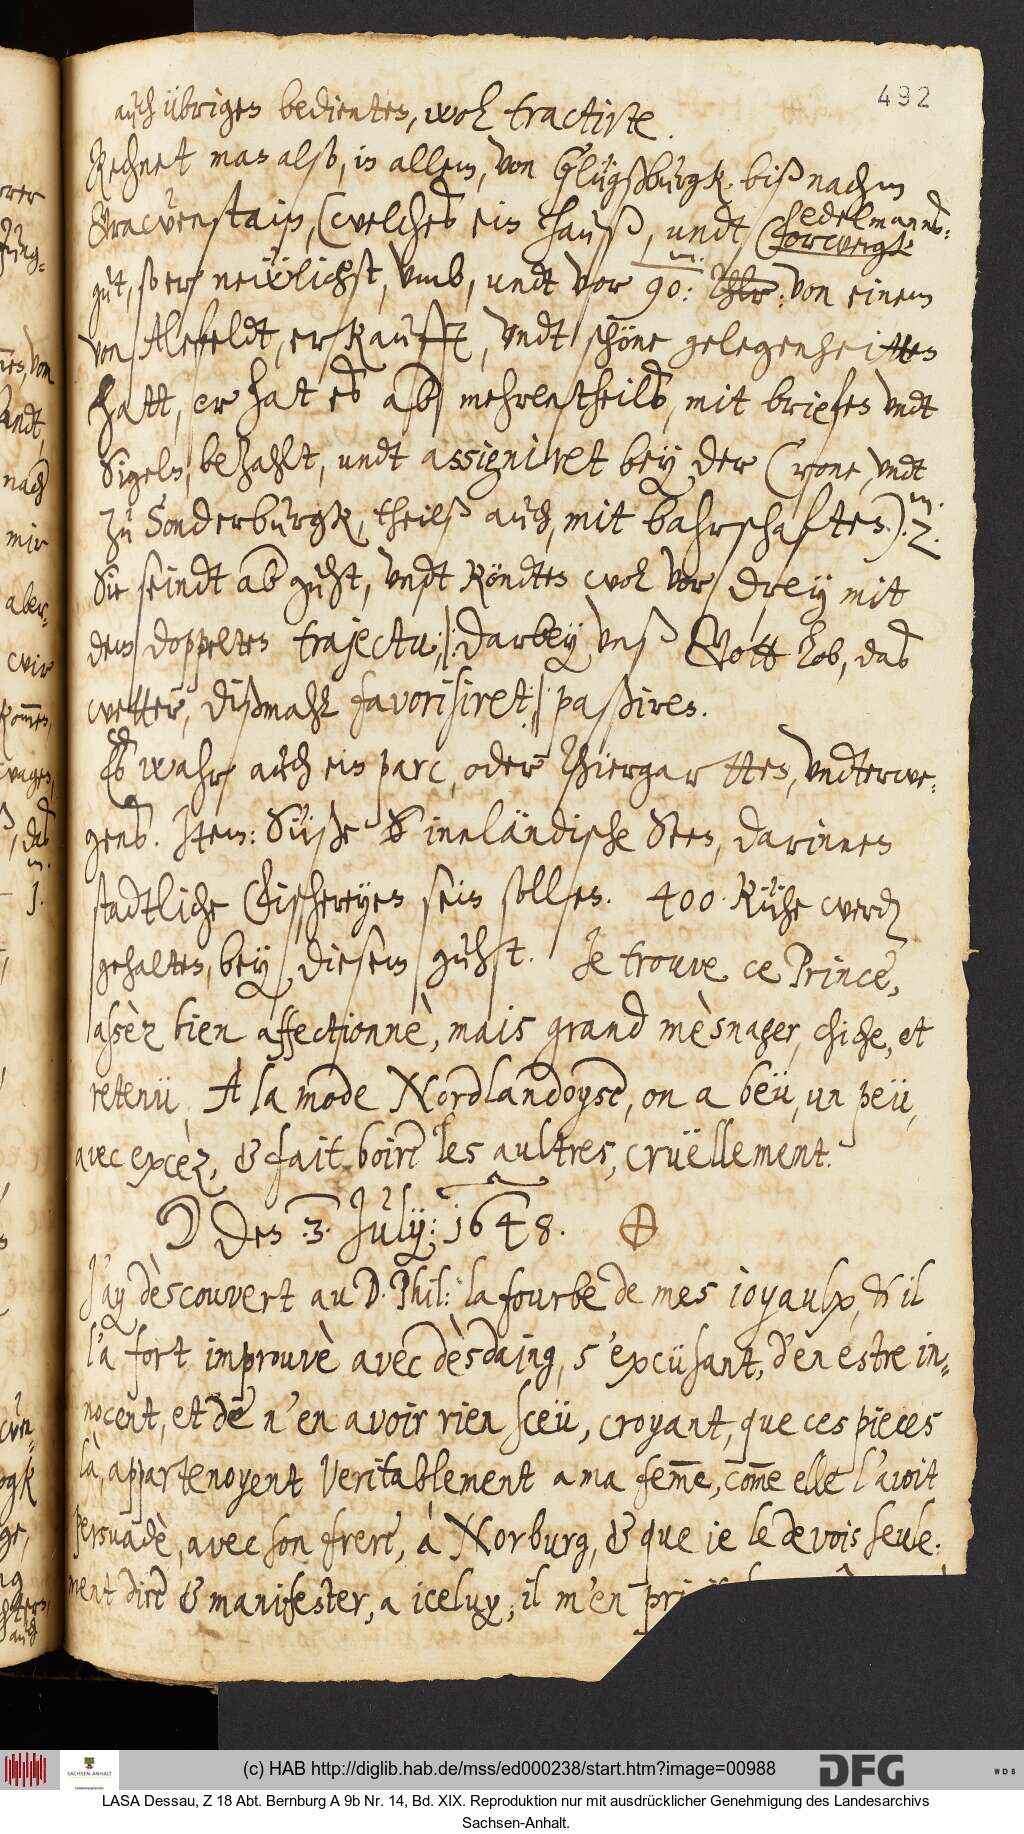 492
auch übriges bedientes, wol tractirte.
Rechnet man alß, in allem, von Glügßburgk biß nachm
Gravenstain, (welches ein hauß, undt edelmannß:
forwergk
gut, so er neẅlichst, umb, undt vor m. 90: Thlr: von einem
von Alefeldt, erkaufft, undt schöne gelegenheitten
hatt, er hat es ab mehrentheilß, mit briefen undt
Sigeln, bezahlt, undt assigniret bey der Crone, undt
zu Sonderburgk, theilß auch, mit bahrschaften.) m. 2.
Sie seindt ab guht, undt köndten wol vor drey mit
dem doppelten trajectu, /: darbey unß Gott lob, das
wetter, dißmahl favorisiret :/ paßiren.
Es wahr auch ein parc, oder Thiergartten, undterwe-
gens. Item: Süße innländische Seen, darinnen
stadtliche Fischereyen sein sollen. 400 Kühe werden
gehalten, bey diesem guht. Je trouve ce Prince,
assèz bien affectionnè, mais grand mèsnager, chiche, et
retenü. A la mode Nordlandoyse, on a beü, un peü,
avec excèz, & fait boire les aultres, crüellement.
☽ den 3. July: 1648. ⊕
J'ay dèscouvert au D. Phil: la fourbe de mes joyaulx, & il
l'a fort improuvè avec dèsdaing, s'excüsant, d'en estre in-
nocent, et de n'en avoir rien sceü, croyant, que ces pieces
là, appartenoyent veritablement a ma feme, come elle l'avoit
persuadè, avec son frere, à Norburg, & que je le devois seule-
ment dire & manifester, a iceluy, il m'en
(c) HAB http://diglib.hab.de/mss/ed000238/start.htm?image=00988
DFG
WDB
SACHSEN-ANHALT
LASA Dessau, Z 18 Abt. Bernburg A 9b Nr. 14, Bd. XIX. Reproduktion nur mit ausdrücklicher Genehmigung des Landesarchivs
Sachsen-Anhalt.